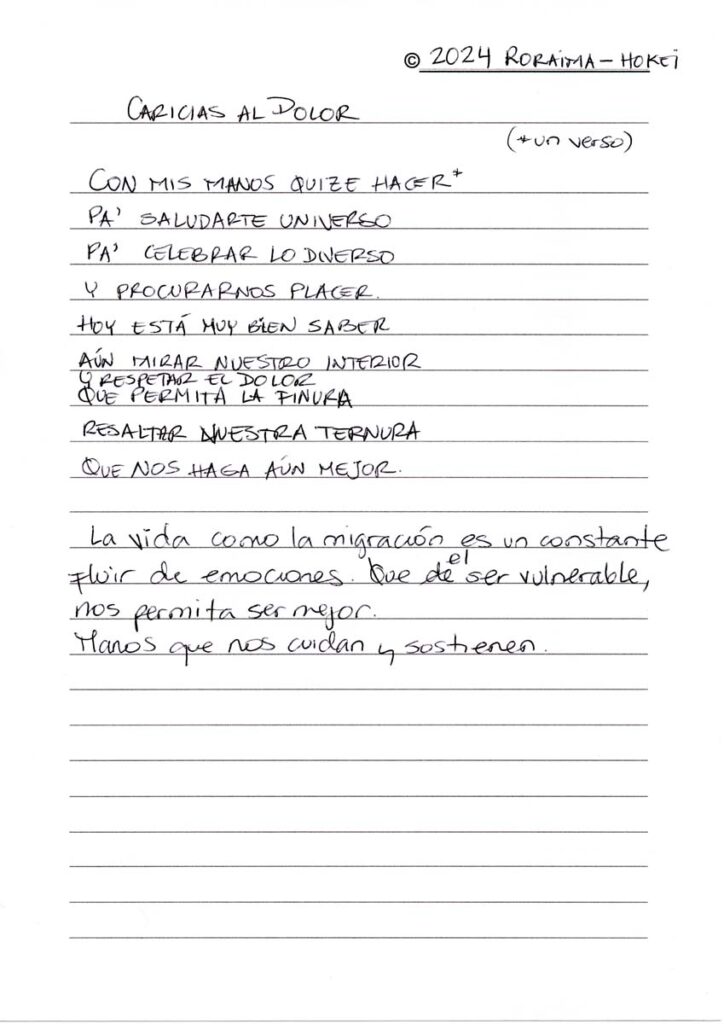 © 2024 RORAIMA-HOKEI
CARICIAS AL DOLOR
(*un verso)
CON MIS MANOS QUIZE HACER*
PA' SALUDARTE UNIVERSO
PA' CELEBRAR LO DIVERSO
Y PROCURARNOS PLACER.
HOY ESTÁ MUY BIEN SABER
AÚN MIRAR NUESTRO INTERIOR
Y RESPETAR EL DOLOR
QUE PERMITA LA FINURA
RESALTAR NUESTRA TERNURA
QUE NOS HAGA AÚN MEJOR.
La vida como la migración es un constante
fluir de emociones. Que de el ser vulnerable,
nos permita ser mejor.
Manos que nos cuidan y sostienen.